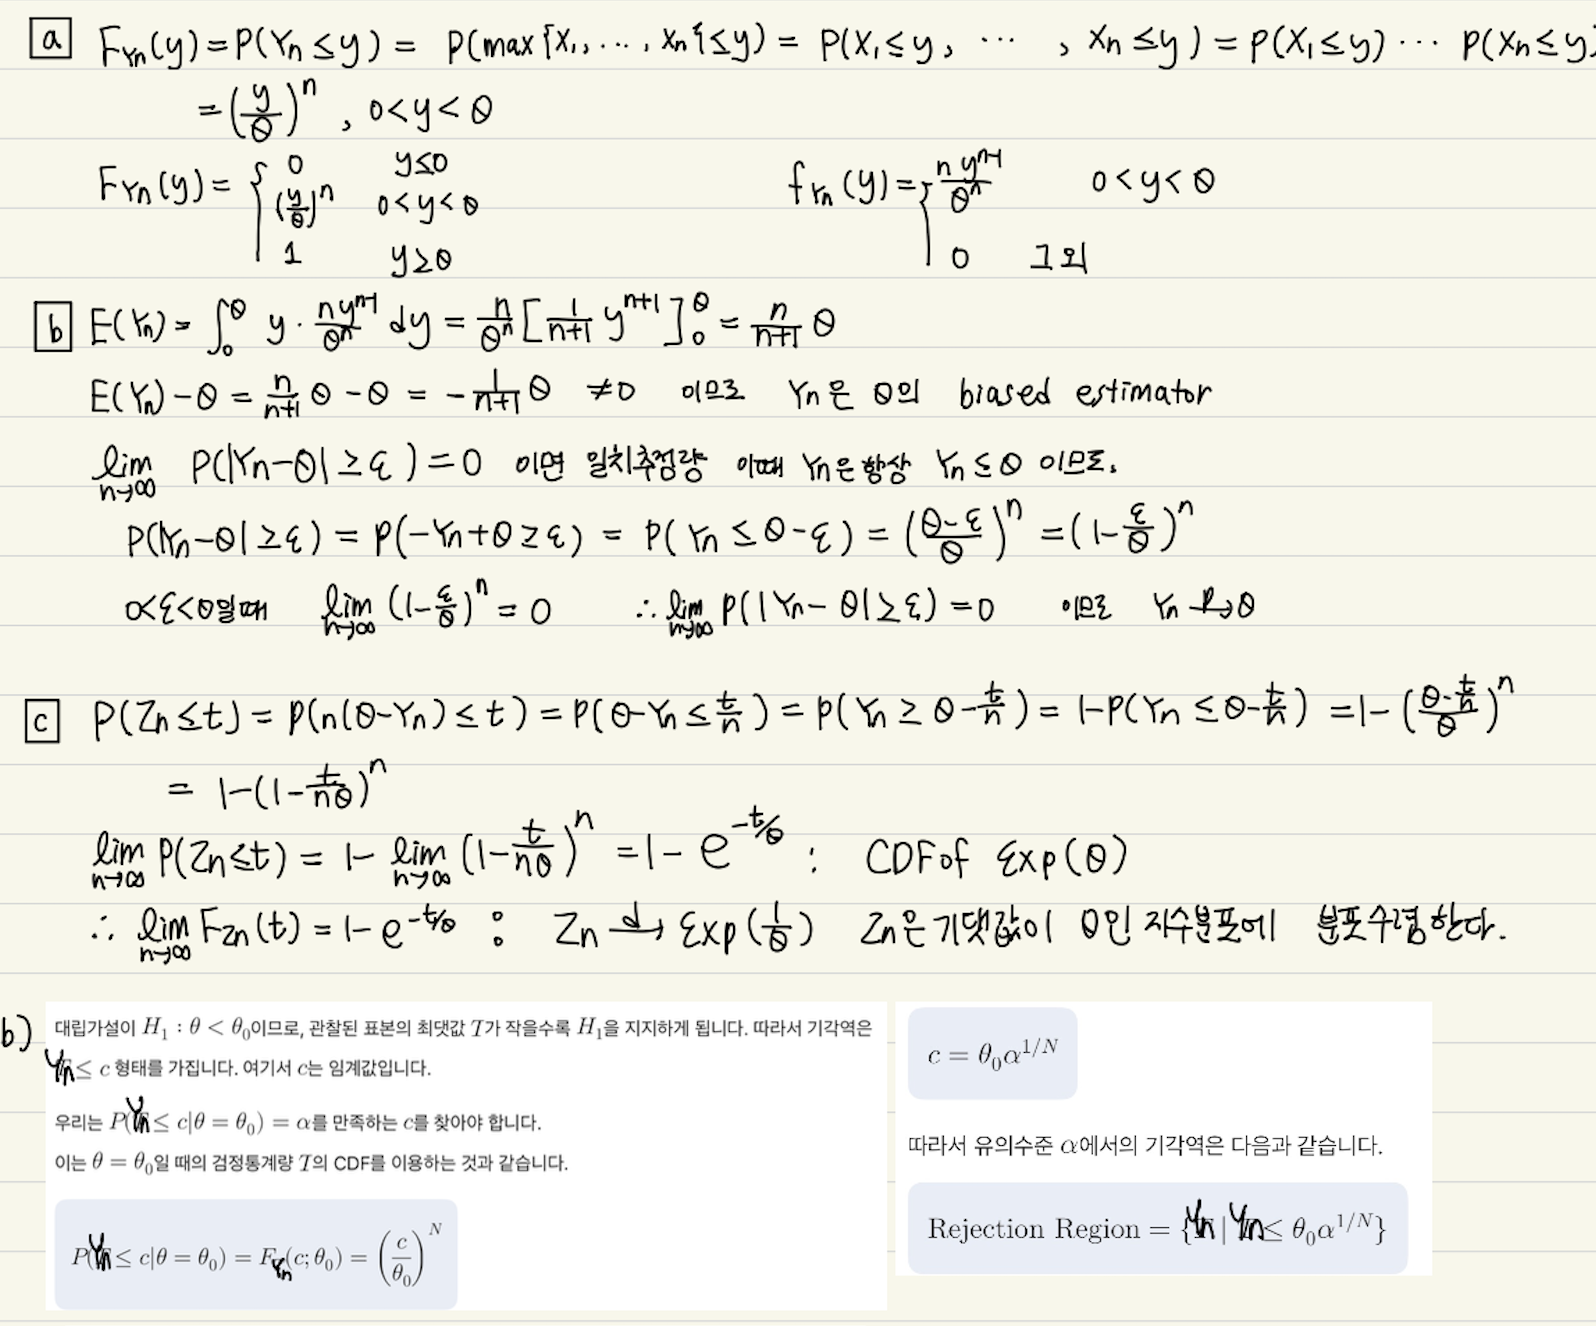 a F_{Yn}(y) = P(Yn ≤ y) = P(max{X₁, ..., Xn} ≤ y) = P(X₁ ≤ y, ... , Xn ≤ y) = P(X₁ ≤ y) ... P(Xn ≤ y)
= (y/θ)^n , 0<y<θ
F_{Yn}(y) = { 0 y≤0
(y/θ)^n 0<y<θ
1 y≥θ
f_{Yn}(y) = { ny^{n-1}/θ^n 0<y<θ
0 그외
b E(Yn) = ∫_0^θ y · ny^{n-1}/θ^n dy = n/θ^n [1/(n+1) y^{n+1}]_0^θ = n/(n+1) θ
E(Yn) - θ = n/(n+1) θ - θ = - 1/(n+1) θ ≠0 이므로 Yn은 θ의 biased estimator
lim_{n→∞} P(|Yn-θ| ≥ ε) = 0 이면 일치추정량 이때 Yn은 항상 Yn ≤ θ 이므로,
P(|Yn-θ| ≥ ε) = P(-Yn+θ ≥ ε) = P(Yn ≤ θ-ε) = ((θ-ε)/θ)^n = (1-ε/θ)^n
0<ε<θ일때 lim_{n→∞} (1-ε/θ)^n = 0 ∴ lim_{n→∞} P(|Yn-θ| ≥ ε) = 0 이므로 Yn →^P θ
c P(Zn ≤ t) = P(n(θ-Yn) ≤ t) = P(θ-Yn ≤ t/n) = P(Yn ≥ θ-t/n) = 1-P(Yn ≤ θ-t/n) = 1-((θ-t/n)/θ)^n
= 1-(1-t/nθ)^n
lim_{n→∞} P(Zn ≤ t) = 1 - lim_{n→∞} (1-t/nθ)^n = 1 - e^{-t/θ} : CDF of Exp(θ)
∴ lim_{n→∞} F_{Zn}(t) = 1-e^{-t/θ} : Zn →^d Exp(1/θ) Zn은 기댓값이 θ인 지수분포에 분포수렴한다.
b) 대립가설이 H₁ : θ < θ₀이므로, 관찰된 표본의 최댓값 T가 작을수록 H₁을 지지하게 됩니다. 따라서 기각역은
Yn ≤ c 형태를 가집니다. 여기서 c는 임계값입니다.
우리는 P(Yn ≤ c|θ = θ₀) = α를 만족하는 c를 찾아야 합니다.
이는 θ = θ₀일 때의 검정통계량 T의 CDF를 이용하는 것과 같습니다.
P(Yn ≤ c|θ = θ₀) = F_{Yn}(c; θ₀) = (c/θ₀)^N
c = θ₀α^{1/N}
따라서 유의수준 α에서의 기각역은 다음과 같습니다.
Rejection Region = {Yn | Yn ≤ θ₀α^{1/N}}